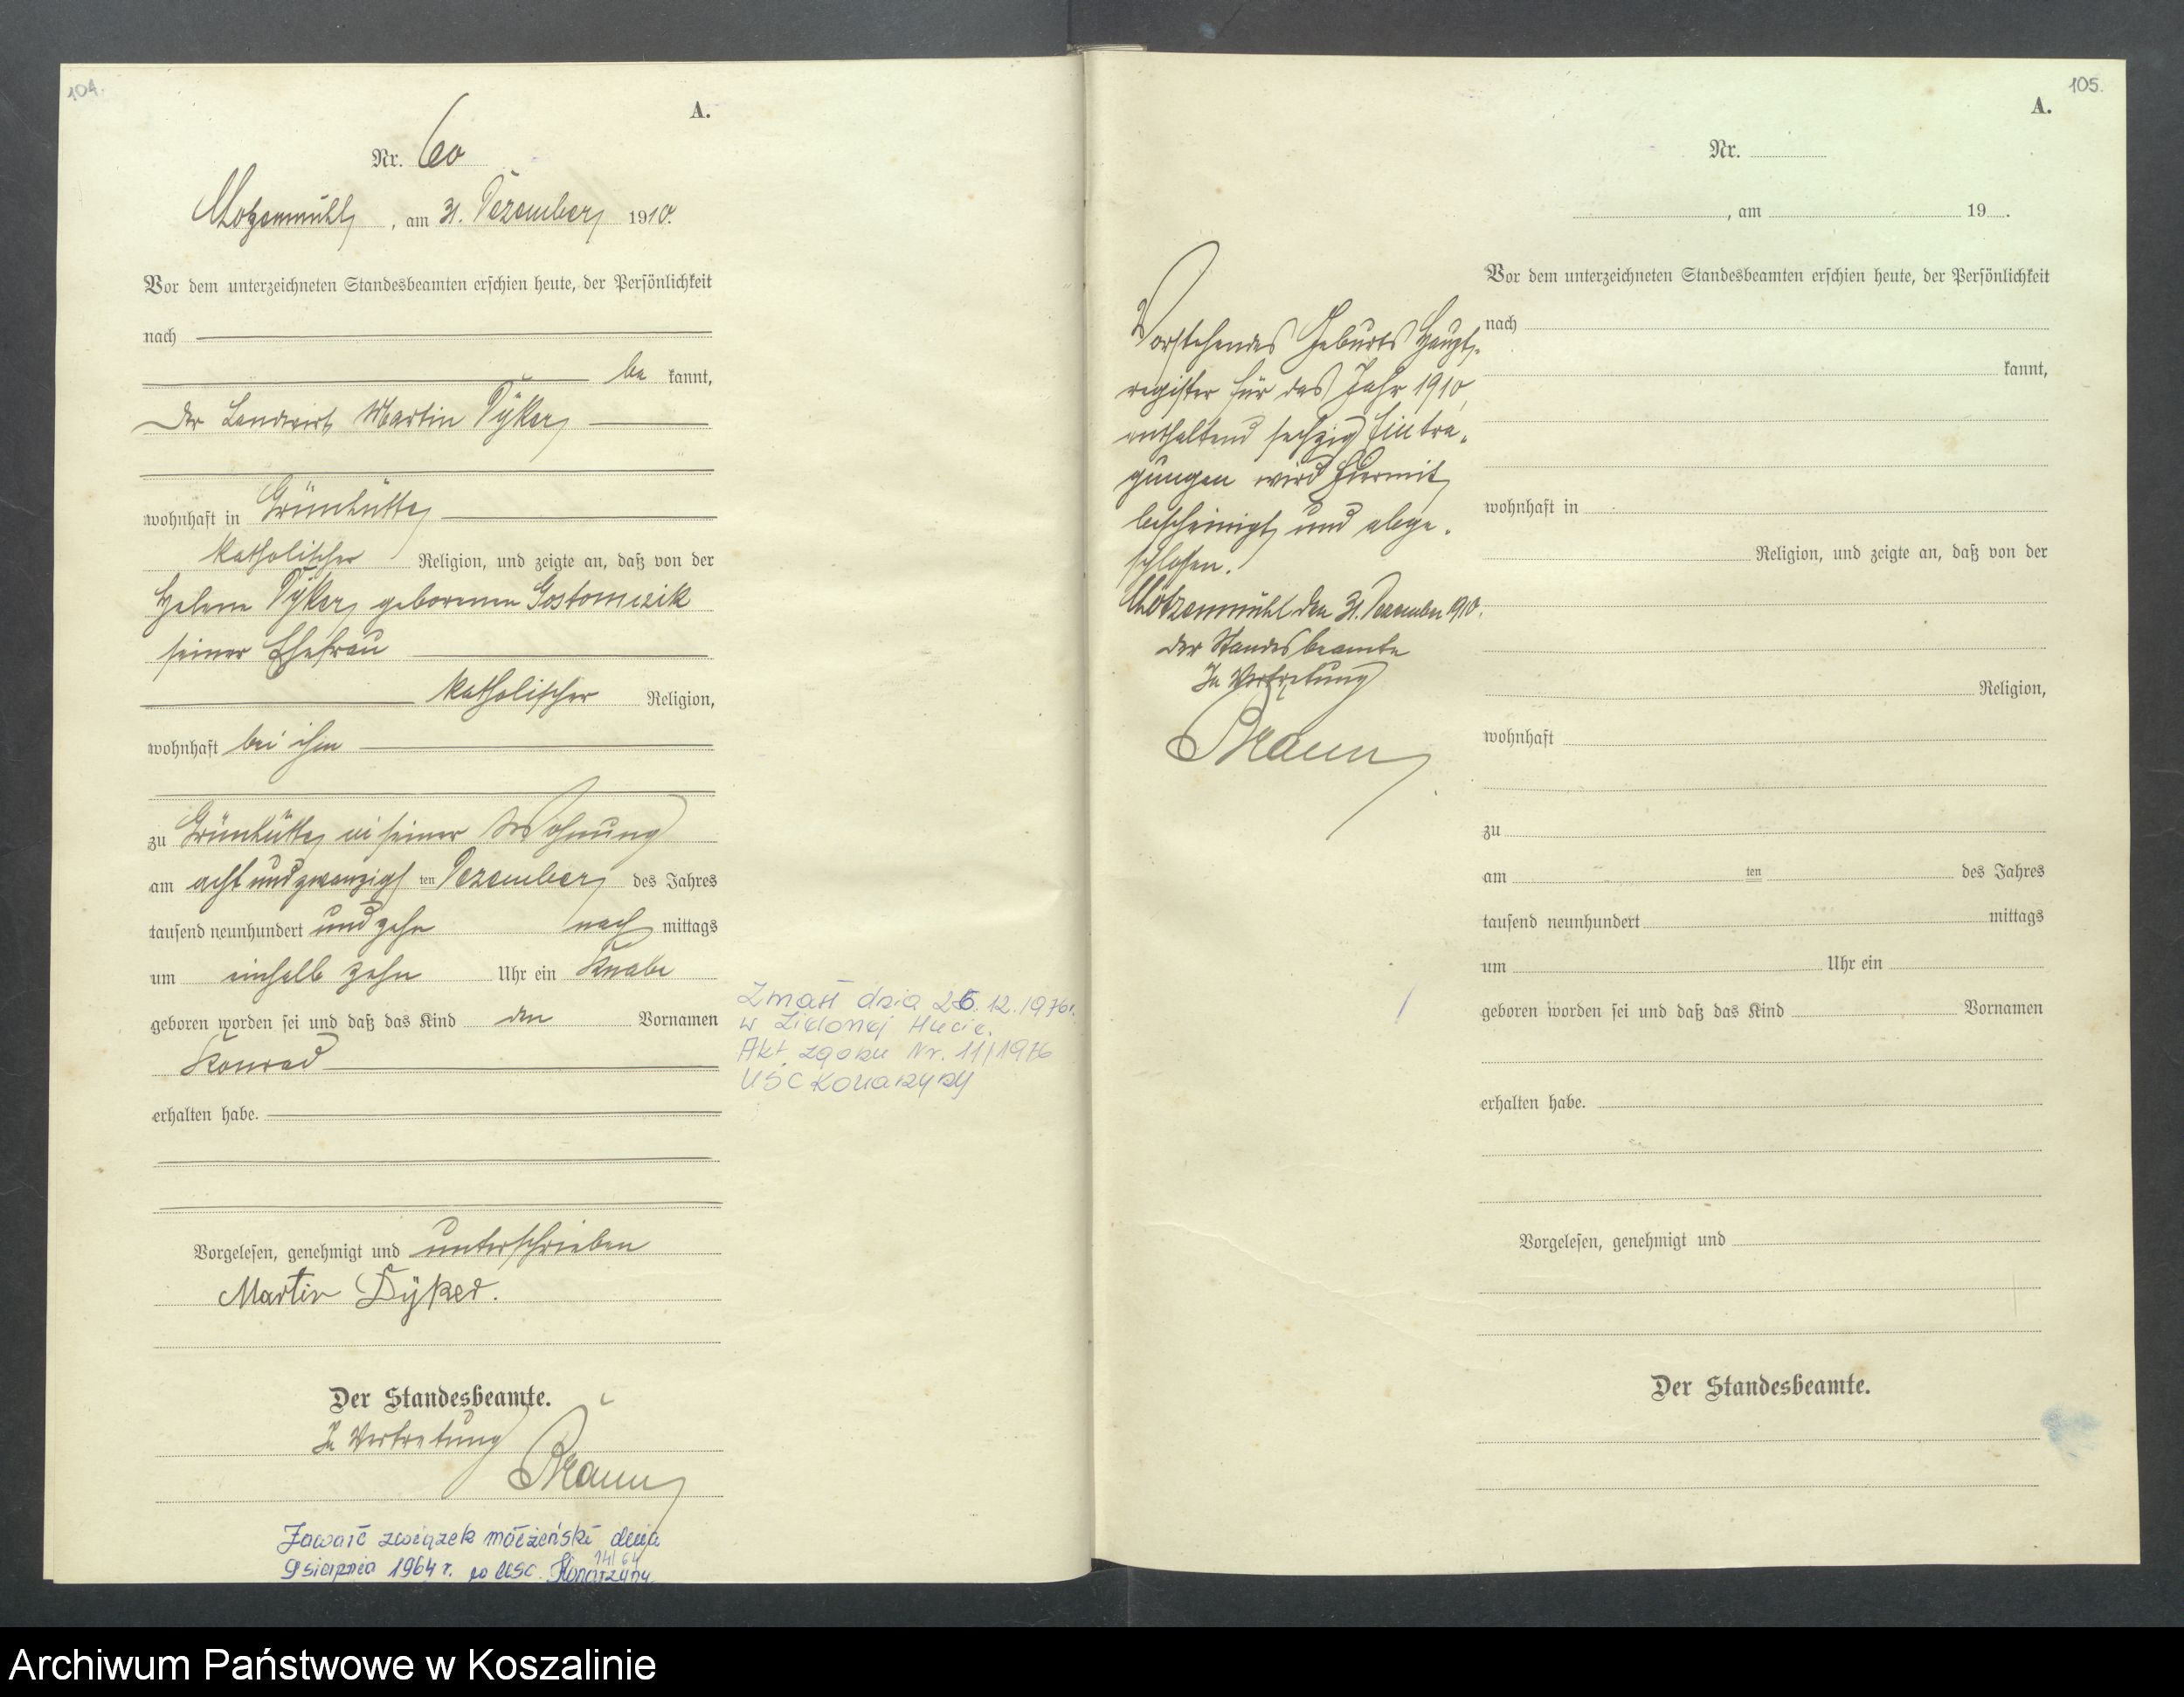 104.
A.
Nr. 60
Klotzenmühl, am 31. Dezember 1910.
Vor dem unterzeichneten Standesbeamten erschien heute, der Persönlichkeit
nach
be kannt,
der Landwirt Martin Dÿker
wohnhaft in Grünhütte
katholischer Religion, und zeigte an, daß von der
Helene Dÿker geborenen Gostomczik
seiner Ehefrau
katholischer Religion,
wohnhaft bei ihm
zu Grünhütte in seiner Wohnung
am acht und zwanzigsten Dezember des Jahres
tausend neunhundert und zehn nach mittags
um einhalb zehn Uhr ein Knabe
geboren worden sei und daß das Kind den Vornamen
Konrad
erhalten habe.
Vorgelesen, genehmigt und unterschrieben
Martin Dÿker.
Der Standesbeamte.
In Vertretung
Zmarł dnia 26.12.1976r.
w Zielonej Hucie.
Akt zgonu Nr. 11/1976
USC Konarzyny
Zawarł związek małżeński dnia
9 sierpnia 1964 r. w USC. Konarzyny 14/64
105.
A.
Nr.
, am 19 .
Vorstehendes Geburts Haupt-
register für das Jahr 1910,
enthaltend sechzig Eintra-
gungen wird hiermit
bescheinigt und abge-
schlossen.
Klotzenmühl den 31. Dezember 1910.
der Standesbeamte
In Vertretung
Vor dem unterzeichneten Standesbeamten erschien heute, der Persönlichkeit
nach
kannt,
wohnhaft in
Religion, und zeigte an, daß von der
Religion,
wohnhaft
zu
am ten des Jahres
tausend neunhundert mittags
um Uhr ein
geboren worden sei und daß das Kind Vornamen
erhalten habe.
Vorgelesen, genehmigt und
Der Standesbeamte.
Archiwum Państwowe w Koszalinie